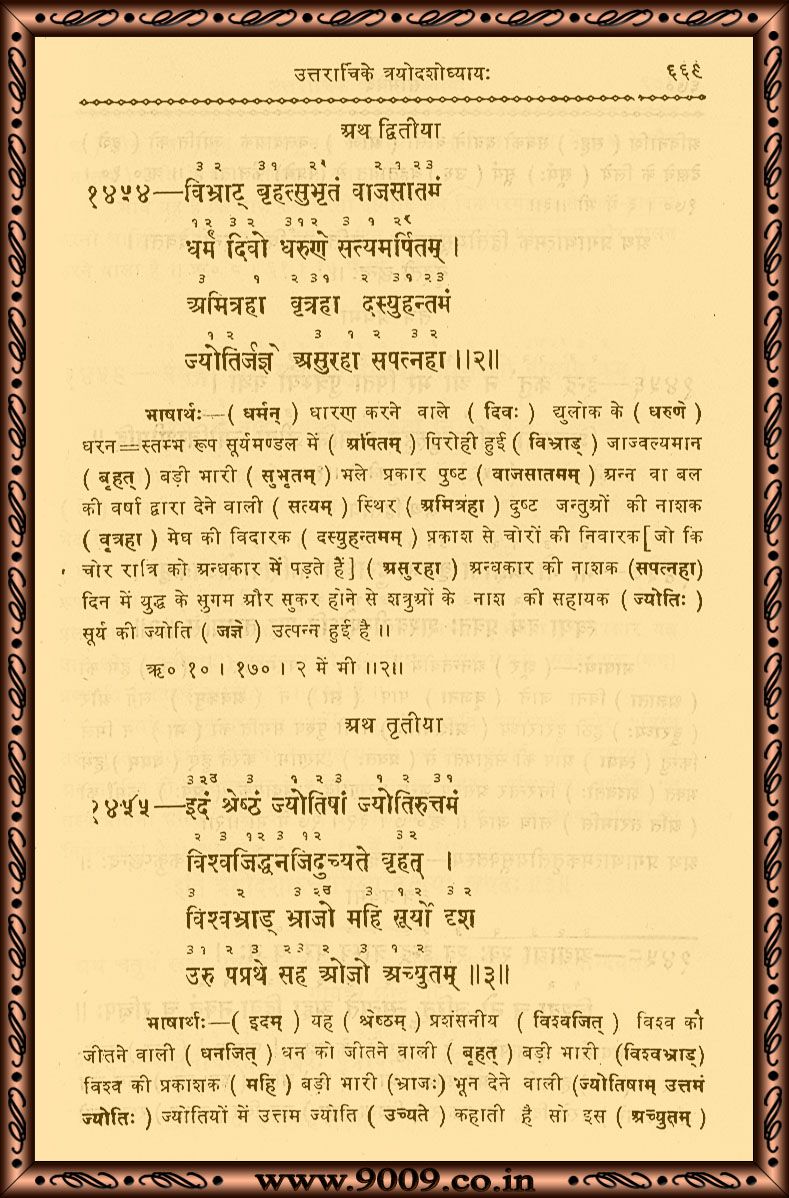 उत्तरार्चिके त्रयोदशोध्यायः ६६९
अथ द्वितीया
३ २ ३१ २र २ १ २ ३
१४५४—विभ्राट् बृहत्सुभृतं वाजसातमं
१ २ ३ २ ३१२ ३ १ २र
धर्मं दिवो धरुणे सत्यमर्पितम् ।
३ १ २ ३१ २ ३१२३
अमित्रहा वृत्रहा दस्युहन्तमं
१ २ ३ १ २ ३ २
ज्योतिर्जज्ञे असुरहा सपत्नहा ।।२॥
भाषार्थः—( धर्मन् ) धारण करने वाले ( दिवः ) द्युलोक के ( धरुणे )
धरन=स्तम्भ रूप सूर्यमण्डल में ( अर्पितम् ) पिरोही हुई ( विभ्राड् ) जाज्वल्यमान
( बृहत् ) बड़ी भारी ( सुभृतम् ) भले प्रकार पुष्ट ( वाजसातमम् ) अन्न वा बल
की वर्षा द्वारा देने वाली ( सत्यम् ) स्थिर ( अमित्रहा ) दुष्ट जन्तुओं की नाशक
( वृत्रहा ) मेघ की विदारक ( दस्युहन्तमम् ) प्रकाश से चोरों की निवारक [ जो कि
चोर रात्रि को अन्धकार में पड़ते हैं ] ( असुरहा ) अन्धकार की नाशक (सपत्नहा)
दिन में युद्ध के सुगम और सुकर होने से शत्रुओं के नाश की सहायक ( ज्योतिः )
सूर्य की ज्योति ( जज्ञे ) उत्पन्न हुई है ॥
ऋ० १० । १७० । २ में भी ।।२॥
अथ तृतीया
३ २उ ३ १ २ ३ १ २ ३१
१४५५—इदं श्रेष्ठं ज्योतिषां ज्योतिरुत्तमं
२ ३ १२ ३ १२ ३ २
विश्वजिद्धनजिदुच्यते बृहत् ।
३ २ ३ २उ ३ १ २ ३ २
विश्वभ्राड् भ्राजो महि सूर्यो दृश
३१ २ ३ २३ २ ३ १ २
उरु पप्रथे सह ओजो अच्युतम् ॥३॥
भाषार्थः—( इदम् ) यह ( श्रेष्ठम् ) प्रशंसनीय ( विश्वजित् ) विश्व को
जीतने वाली ( धनजित् ) धन को जीतने वाली ( बृहत् ) बड़ी भारी (विश्वभ्राड्)
विश्व की प्रकाशक ( महि ) बड़ी भारी (भ्राजः) भून देने वाली (ज्योतिषाम् उत्तमं
ज्योतिः ) ज्योतियों में उत्ताम ज्योति ( उच्यते ) कहाती है सो इस ( अच्युतम् )
www.9009.co.in